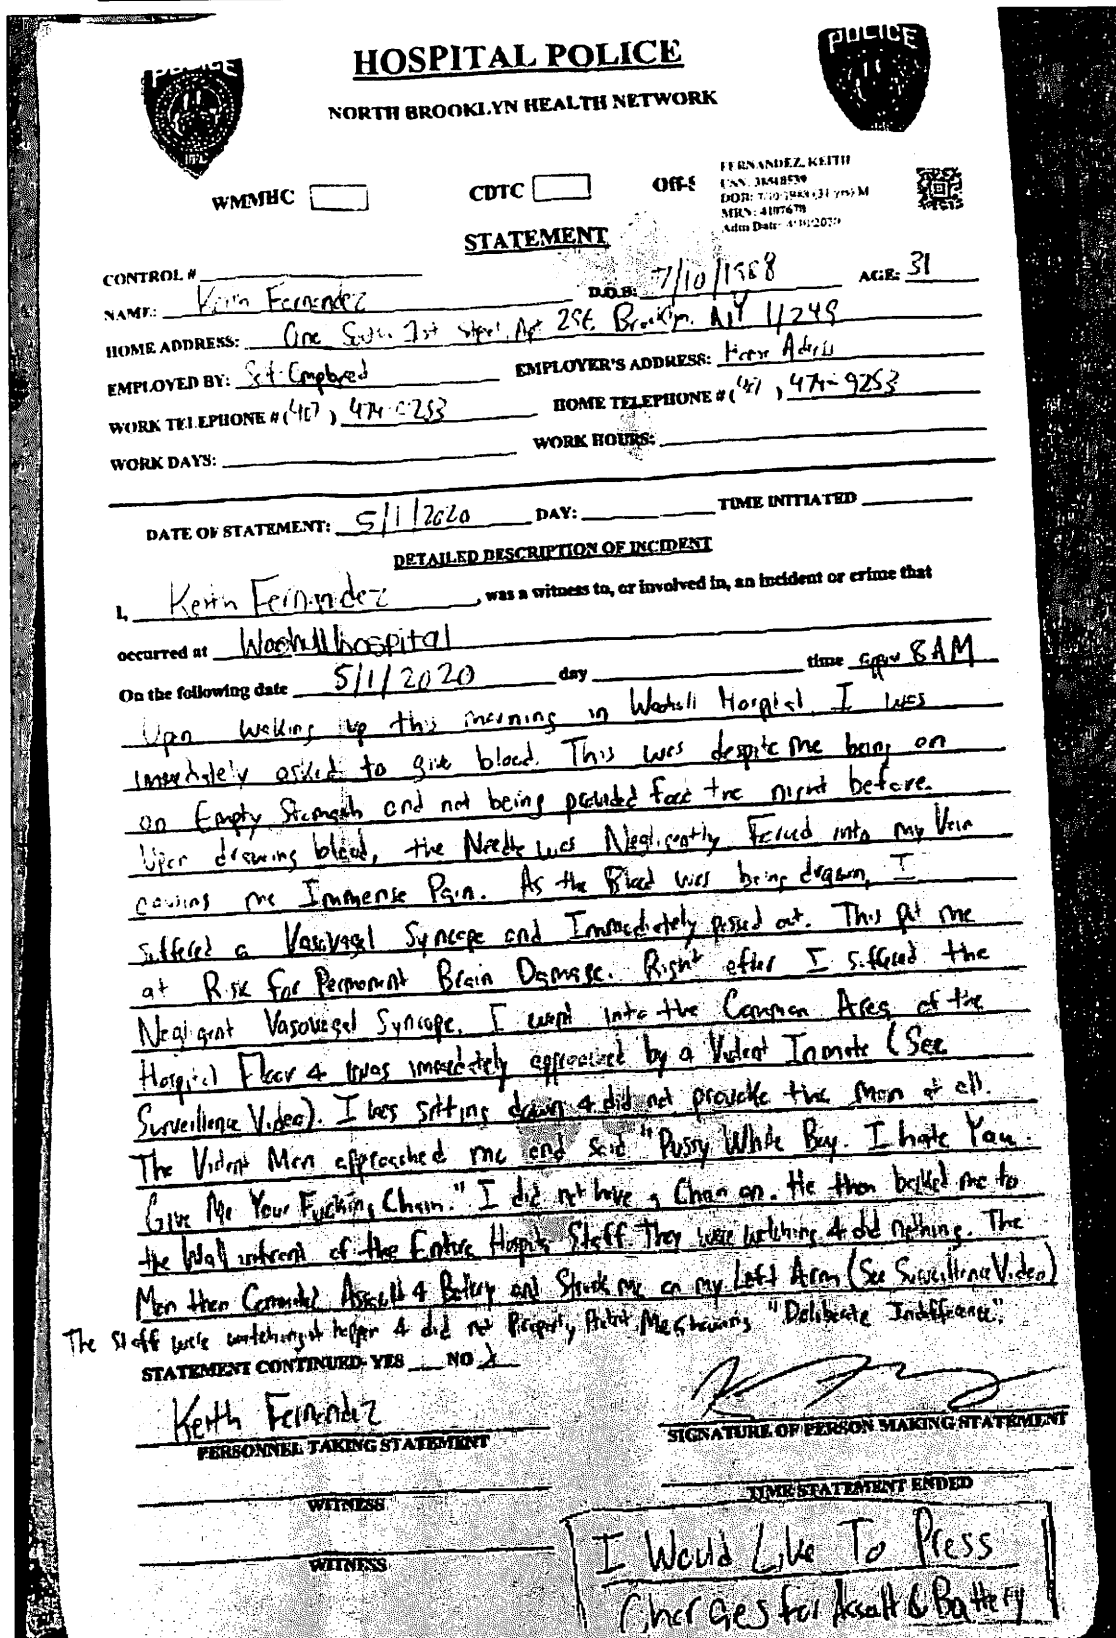 POLICE
POLICE
HOSPITAL POLICE
NORTH BROOKLYN HEALTH NETWORK
WMMHC
CDTC
Off-S
FERNANDEZ, KEITH
DOB: 7/10/1988 (31 yrs) M
MRN: 4107678
Adm Date:
STATEMENT
CONTROL #
NAME: Keith Fernandez D.O.B: 7/10/1988 AGE: 31
HOME ADDRESS: One South 1st Street, Apt 25E Brooklyn, NY 11249
EMPLOYED BY: Self-Employed EMPLOYER'S ADDRESS: Home Address
WORK TELEPHONE # (407) 474-9253 HOME TELEPHONE # (407) 474-9253
WORK DAYS: WORK HOURS:
DATE OF STATEMENT: 5/1/2020 DAY: TIME INITIATED
DETAILED DESCRIPTION OF INCIDENT
I, Keith Fernandez, was a witness to, or involved in, an incident or crime that
occurred at Woohull hospital
On the following date 5/1/2020 day time approx 8AM
Upon waking up this morning in Woohull Hospital, I was
immediately asked to give blood. This was despite me being on
an Empty Stomach and not being provided food the night before.
Upon drawing blood, the Needle was Negligently Forced into my Vein
causing me Immense Pain. As the Blood was being drawn, I
suffered a Vasovagel Syncope and Immediately passed out. This put me
at Risk for Permanent Brain Damage. Right after I suffered the
Negligent Vasovagel Syncope, I went into the Common Area of the
Hospital Floor & was immediately approached by a Violent Inmate (See
Surveillance Video). I was sitting down & did not provoke the man at all.
The Violent Man approached me and said "Pussy White Boy. I hate You.
Give Me Your Fucking Chain." I did not have a Chain on. He then backed me to
the Wall infront of the Entire Hospital Staff They were watching & did nothing. The
Man then Commited Assault & Battery and Struck me on my Left Arm (See Surveillance Video)
The Staff were watching it happen & did not Properly Protect Me Showing "Deliberate Indifference".
STATEMENT CONTINUED- YES NO X
Keith Fernandez
PERSONNEL TAKING STATEMENT SIGNATURE OF PERSON MAKING STATEMENT
WITNESS TIME STATEMENT ENDED
WITNESS
I Would Like To Press
Charges for Assault & Battery